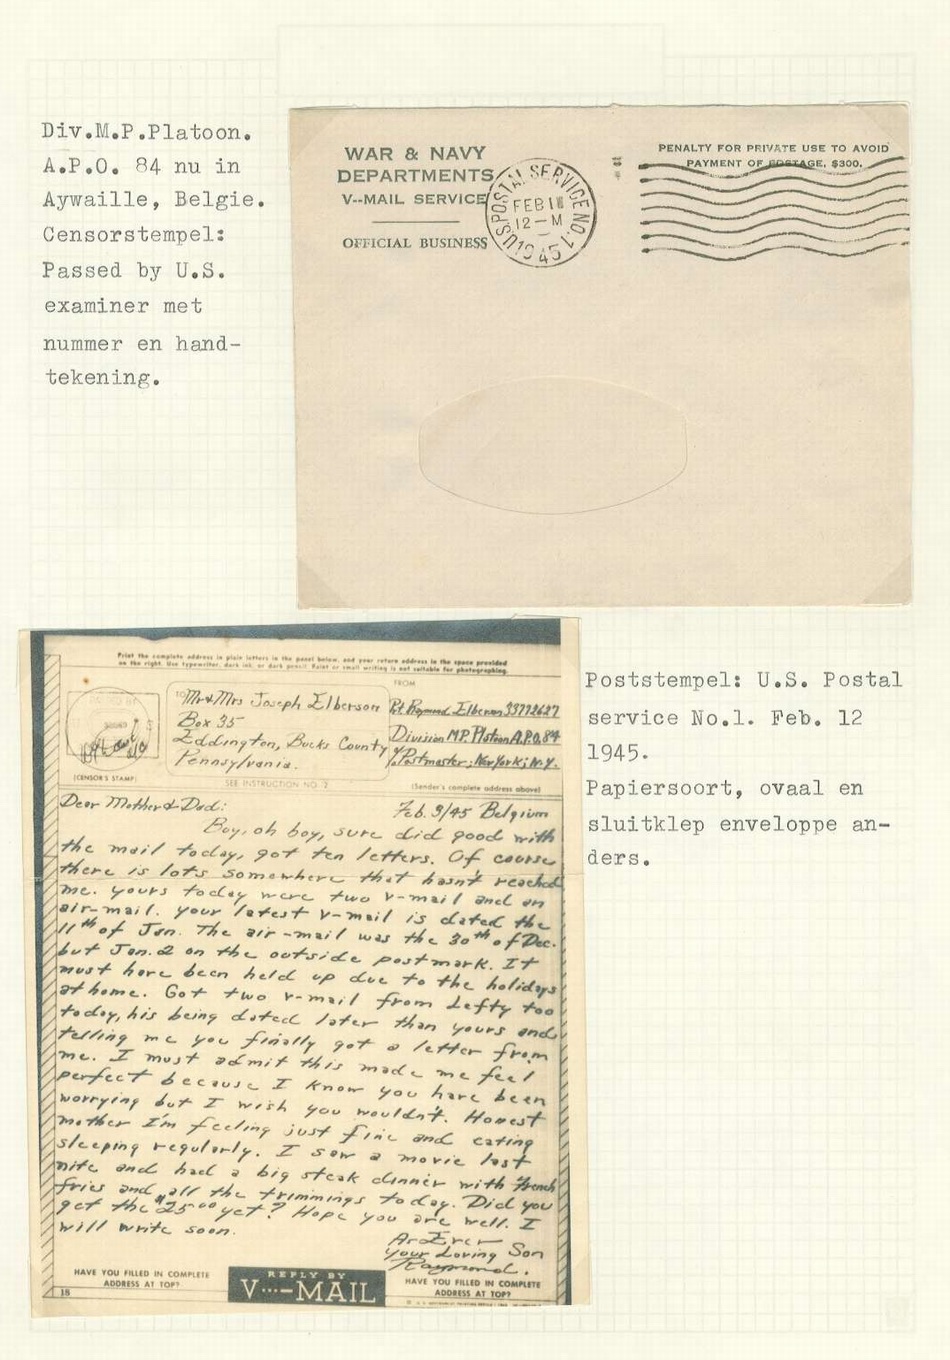 Div.M.P.Platoon.
A.P.O. 84 nu in
Aywaille, Belgie.
Censorstempel:
Passed by U.S.
examiner met
nummer en hand-
tekening.
WAR & NAVY
DEPARTMENTS
V--MAIL SERVICE
OFFICIAL BUSINESS
U.S. POSTAL SERVICE NO.1
FEB 1
12-M
1945
PENALTY FOR PRIVATE USE TO AVOID
PAYMENT OF POSTAGE, $300.
Print the complete address in plain letters in the panel below, and your return address in the space provided
on the right. Use typewriter, dark ink, or dark pencil. Faint or small writing is not suitable for photographing.
TO
Mr & Mrs Joseph Elberson
Box 35
Eddington, Bucks County
Pennsylvania.
FROM
Pvt. Raymond Elberson 33772627
Division M.P. Platoon A.P.O. 84
c/o Postmaster; New York; N.Y.
(CENSOR'S STAMP)
SEE INSTRUCTION NO. 2
(Sender's complete address above)
Dear Mother & Dad:
Feb. 3/45 Belgium
Boy, oh boy, sure did good with
the mail today, got ten letters. Of course
there is lots somewhere that hasn't reached
me. yours today were two v-mail and an
air-mail. your latest v-mail is dated the
11th of Jan. The air-mail was the 30th of Dec.
but Jan. 2 on the outside postmark. It
must have been held up due to the holidays
at home. Got two v-mail from Lefty too
today, his being dated later than yours and
telling me you finally got a letter from
me. I must admit this made me feel
perfect because I know you have been
worrying but I wish you wouldn't. Honest
mother I'm feeling just fine and eating
sleeping regularly. I saw a movie last
nite and had a big steak dinner with french
fries and all the trimmings today. Did you
get the $25.00 yet? Hope you are well. I
will write soon.
As Ever
your Loving Son
Raymond.
HAVE YOU FILLED IN COMPLETE
ADDRESS AT TOP?
REPLY BY
V···—MAIL
HAVE YOU FILLED IN COMPLETE
ADDRESS AT TOP?
18
Poststempel: U.S. Postal
service No.1. Feb. 12
1945.
Papiersoort, ovaal en
sluitklep enveloppe an-
ders.